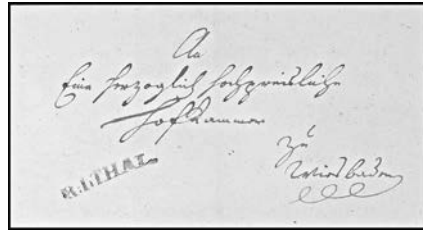 An
Eine herzoglich hochpreisliche
Hofkammer
zu
Wiesbaden